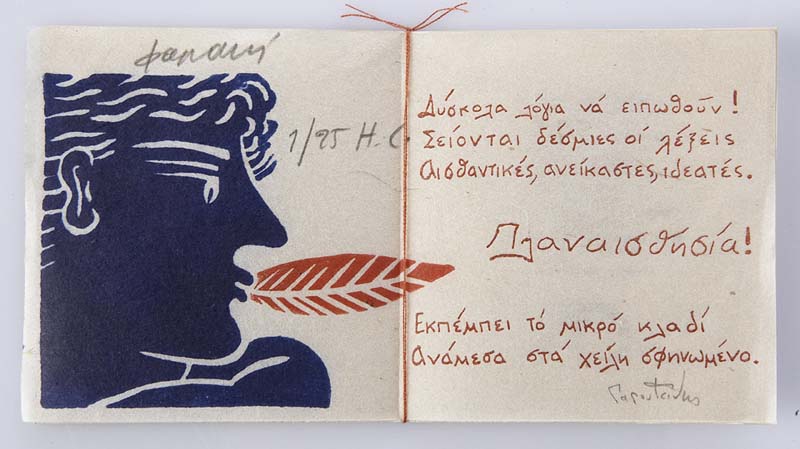 φασιανή
1/25 H.C.
Δύσκολα λόγια νά ειπωθοῦν!
Σείονται δέσμιες οἱ λέξεις
Αισθαντικές, ανείκαστες, ιδεατές.
Πλαναισθησία!
Εκπέμπει τό μικρό κλαδί
Ανάμεσα στά χείλη σφηνωμένο.